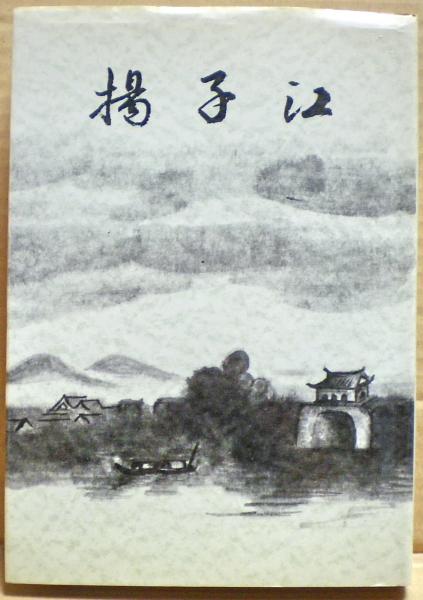 揚子江